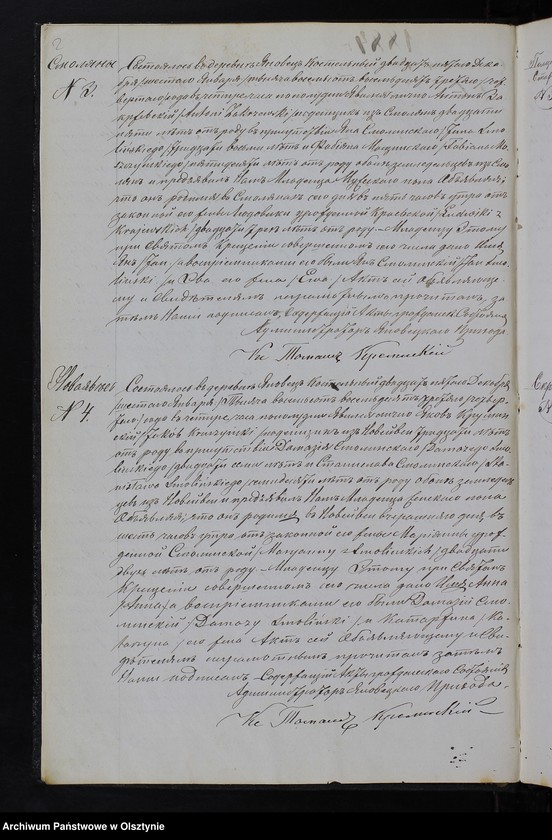 2
1884
Смоляны
№ 3.
Состоялось въ деревнѣ Яновецъ Костельный двадцать пятаго Дека-
бря /шестаго Января/ тысяча восемьсотъ восемьдесятъ третьяго /чет-
вертаго/ года въ четыре часа пополудни. Явился лично Антонъ
изъ Смолянъ двадцати
пяти лѣтъ отъ роду въ присутствіи Яна Смолинскаго /Jana Smo-
lińskiego/ тридцати восьми лѣтъ и
пятидесяти лѣтъ отъ роду обоихъ земледѣльцевъ изъ Смо-
лянъ и предъявилъ Намъ Младенца Мужескаго пола Объявляя
что онъ родился въ Смолянахъ сего дня въ пять часовъ утра отъ
законной его жены Людовики урожденной Краевской /Ludwiki z
Krajewskich/ двадцати трехъ лѣтъ отъ роду. Младенцу Этому
при Святомъ Крещеніи совершенномъ сего числа дано Имя
Янъ /Jan/ а воспріемниками его были Янъ Смолинскій /Jan Smo-
liński/ и Эва его жена /Ewa/ Актъ сей Объявляюще-
му и Свидѣтелямъ неграмотнымъ прочитанъ, за-
тѣмъ Нами подписанъ. Содержащій Акты гражданскаго Состоянія
Администраторъ Яновецкаго Прихода
Кс Томашъ
№ 4.
Состоялось въ деревнѣ Яновецъ Костельный двадцать пятаго Декабря
/шестаго Января/ Тысяча восемьсотъ восемьдесятъ третьяго /четвер-
таго/ года въ четыре часа пополудни. Явился лично Яковъ
изъ Новейвси тридцати лѣтъ
отъ роду въ присутствіи Дамазія Смолинскаго /Damazego Smo-
lińskiego/ двадцати семи лѣтъ и Станислава Смолинскаго /Sta-
nisława Smolińskiego/ лѣтъ отъ роду обоихъ земледѣль-
цевъ изъ Новейвси и предъявилъ Намъ Младенца Женскаго пола
Объявляя, что онъ родился въ Новейвси вчерашняго дня въ
шесть часовъ утра отъ законной его жены Маріанны урож-
денной Смолинской /Maryanny z Smolińskich/ двадцати
двухъ лѣтъ отъ роду. Младенцу Этому при Святомъ
Крещеніи совершенномъ сего числа дано Имя Анна
/Anna/ а воспріемниками его были Дамазій Смо-
линскій /Damazy Smoliński/ и Катаржина /Ka-
tarzyna/ его жена Актъ сей Объявляющему и Сви-
дѣтелямъ неграмотнымъ прочитанъ затѣмъ
Нами подписанъ. Содержащій Акты гражданскаго Состоянія
Администраторъ Яновецкаго Прихода.
Кс Томашъ
Archiwum Państwowe w Olsztynie